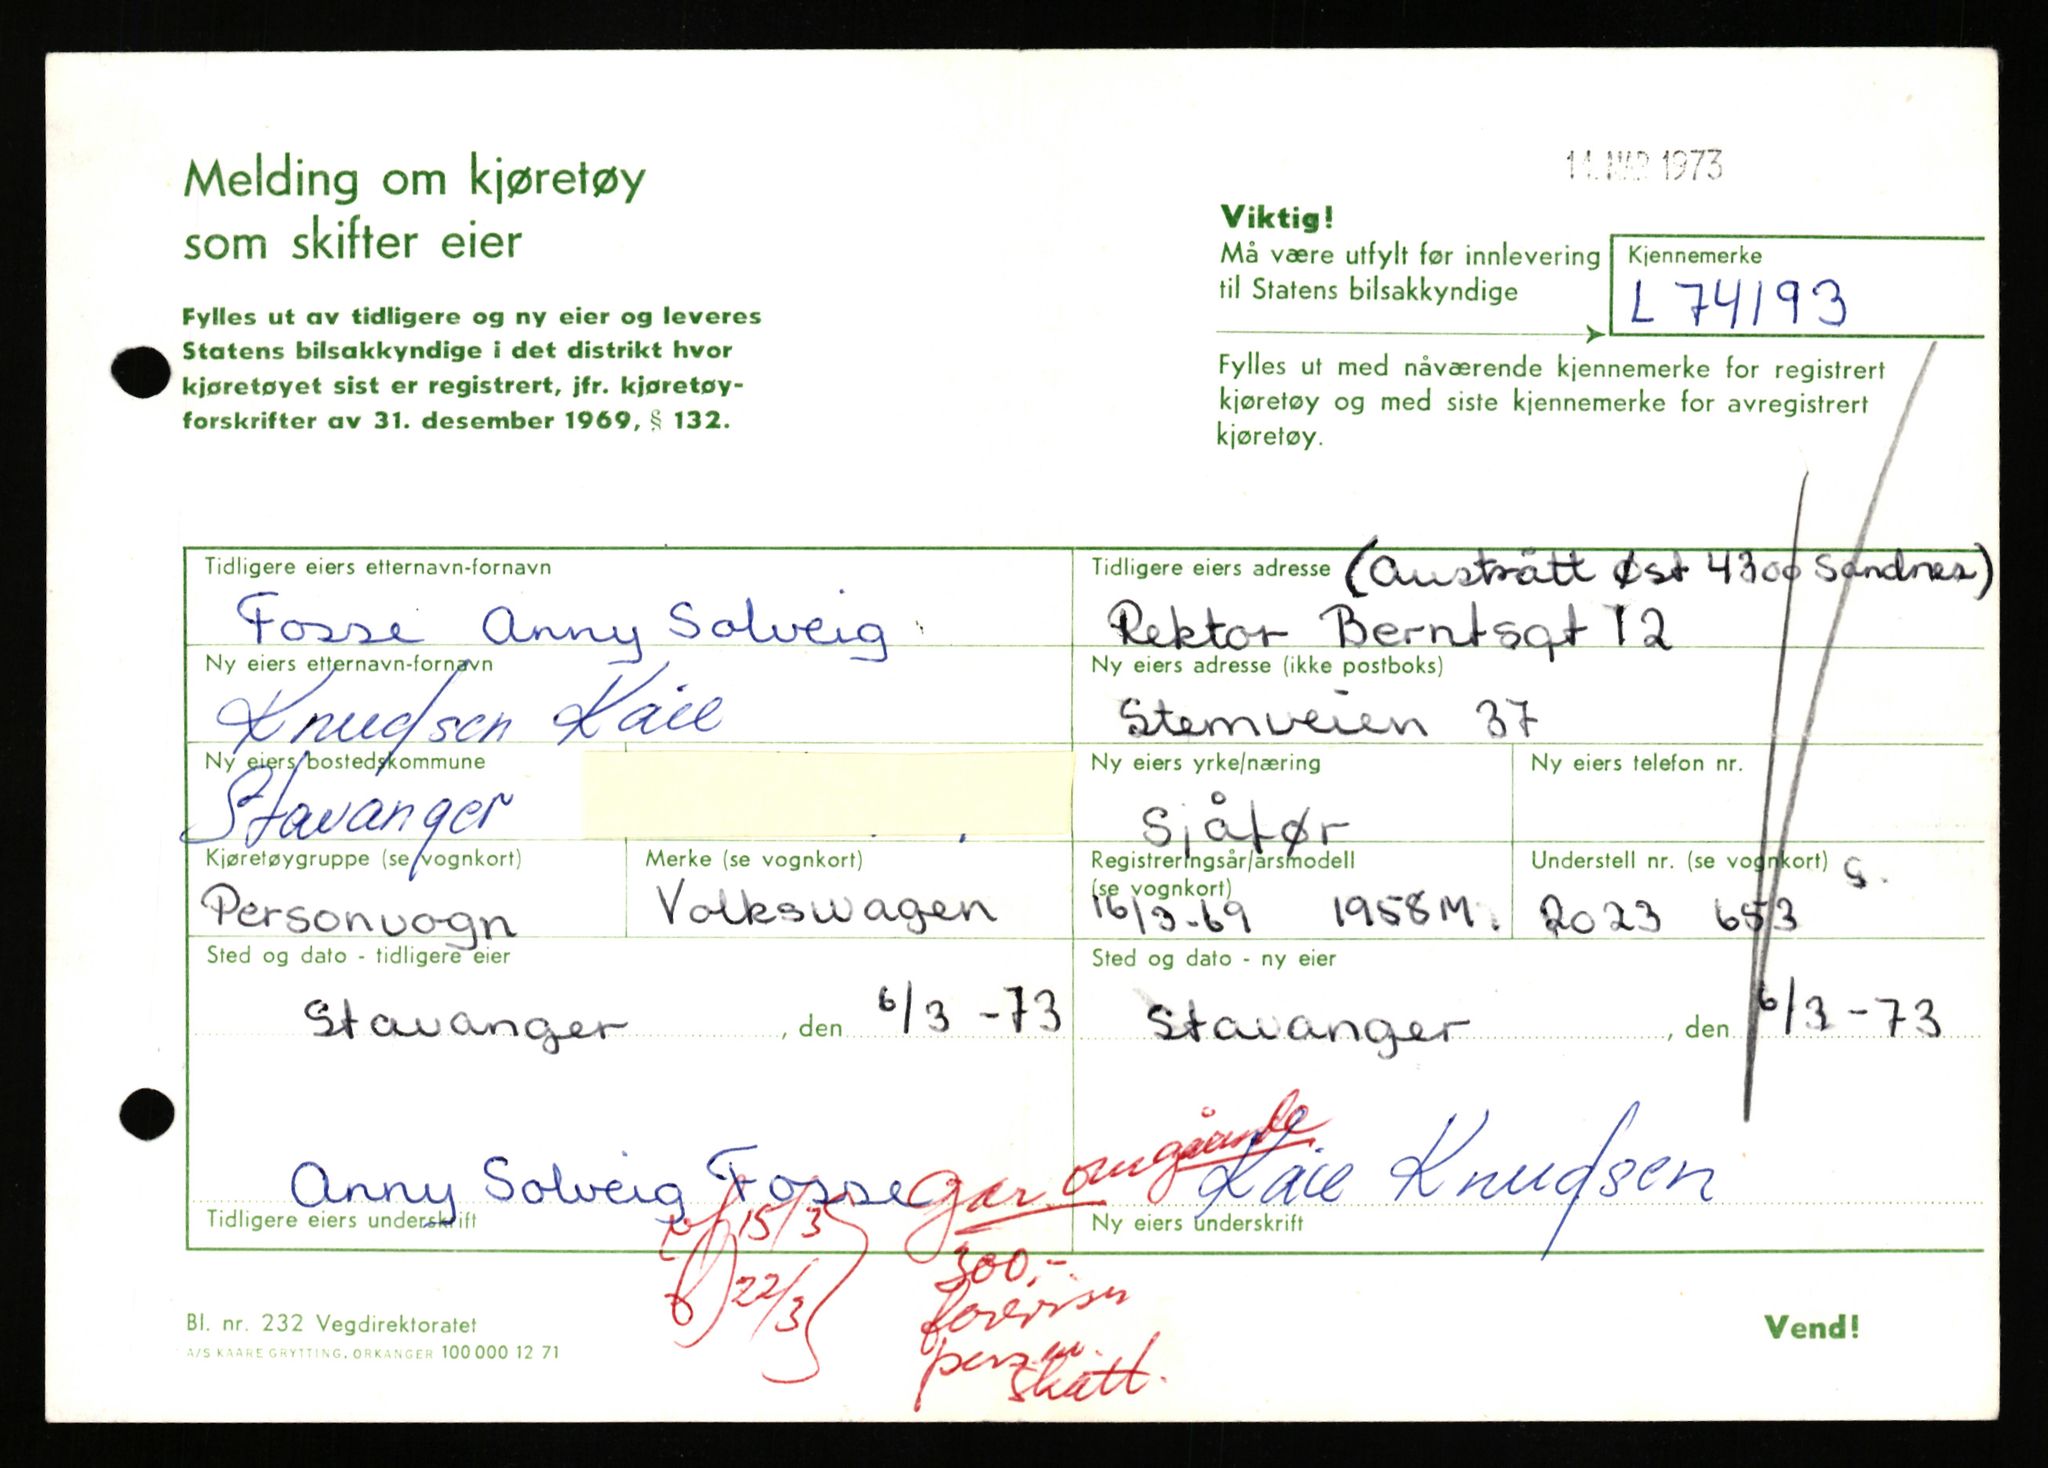 14. MAR 1973
Melding om kjøretøy
som skifter eier
Fylles ut av tidligere og ny eier og leveres
Statens bilsakkyndige i det distrikt hvor
kjøretøyet sist er registrert, jfr. kjøretøy-
forskrifter av 31. desember 1969, § 132.
Viktig!
Må være utfylt før innlevering
til Statens bilsakkyndige
Kjennemerke
L 74193
Fylles ut med nåværende kjennemerke for registrert
kjøretøy og med siste kjennemerke for avregistrert
kjøretøy.
Tidligere eiers etternavn-fornavn
Fosse Anny Solveig
Tidligere eiers adresse (Austrått Øst 4300 Sandnes)
Rektor Berntsgt 12
Ny eiers etternavn-fornavn
Knudsen Kåre
Ny eiers adresse (ikke postboks)
Stemveien 37
Ny eiers bostedskommune
Stavanger
Ny eiers yrke/næring
Sjåfør
Ny eiers telefon nr.
Kjøretøygruppe (se vognkort)
Personvogn
Merke (se vognkort)
Volkswagen
Registreringsår/årsmodell
(se vognkort)
16/3-69 1958 M.
Understell nr. (se vognkort) S.
2023 653
Sted og dato - tidligere eier
Stavanger, den 6/3-73
Sted og dato - ny eier
Stavanger, den 6/3-73
Anny Solveig Fosse
Tidligere eiers underskrift
Kåre Knudsen
Ny eiers underskrift
gar. omgående
15/3
22/3
300,-
forevises
pers.
skatt.
Bl. nr. 232 Vegdirektoratet
A/S KAARE GRYTTING, ORKANGER 100 000 12 71
Vend!